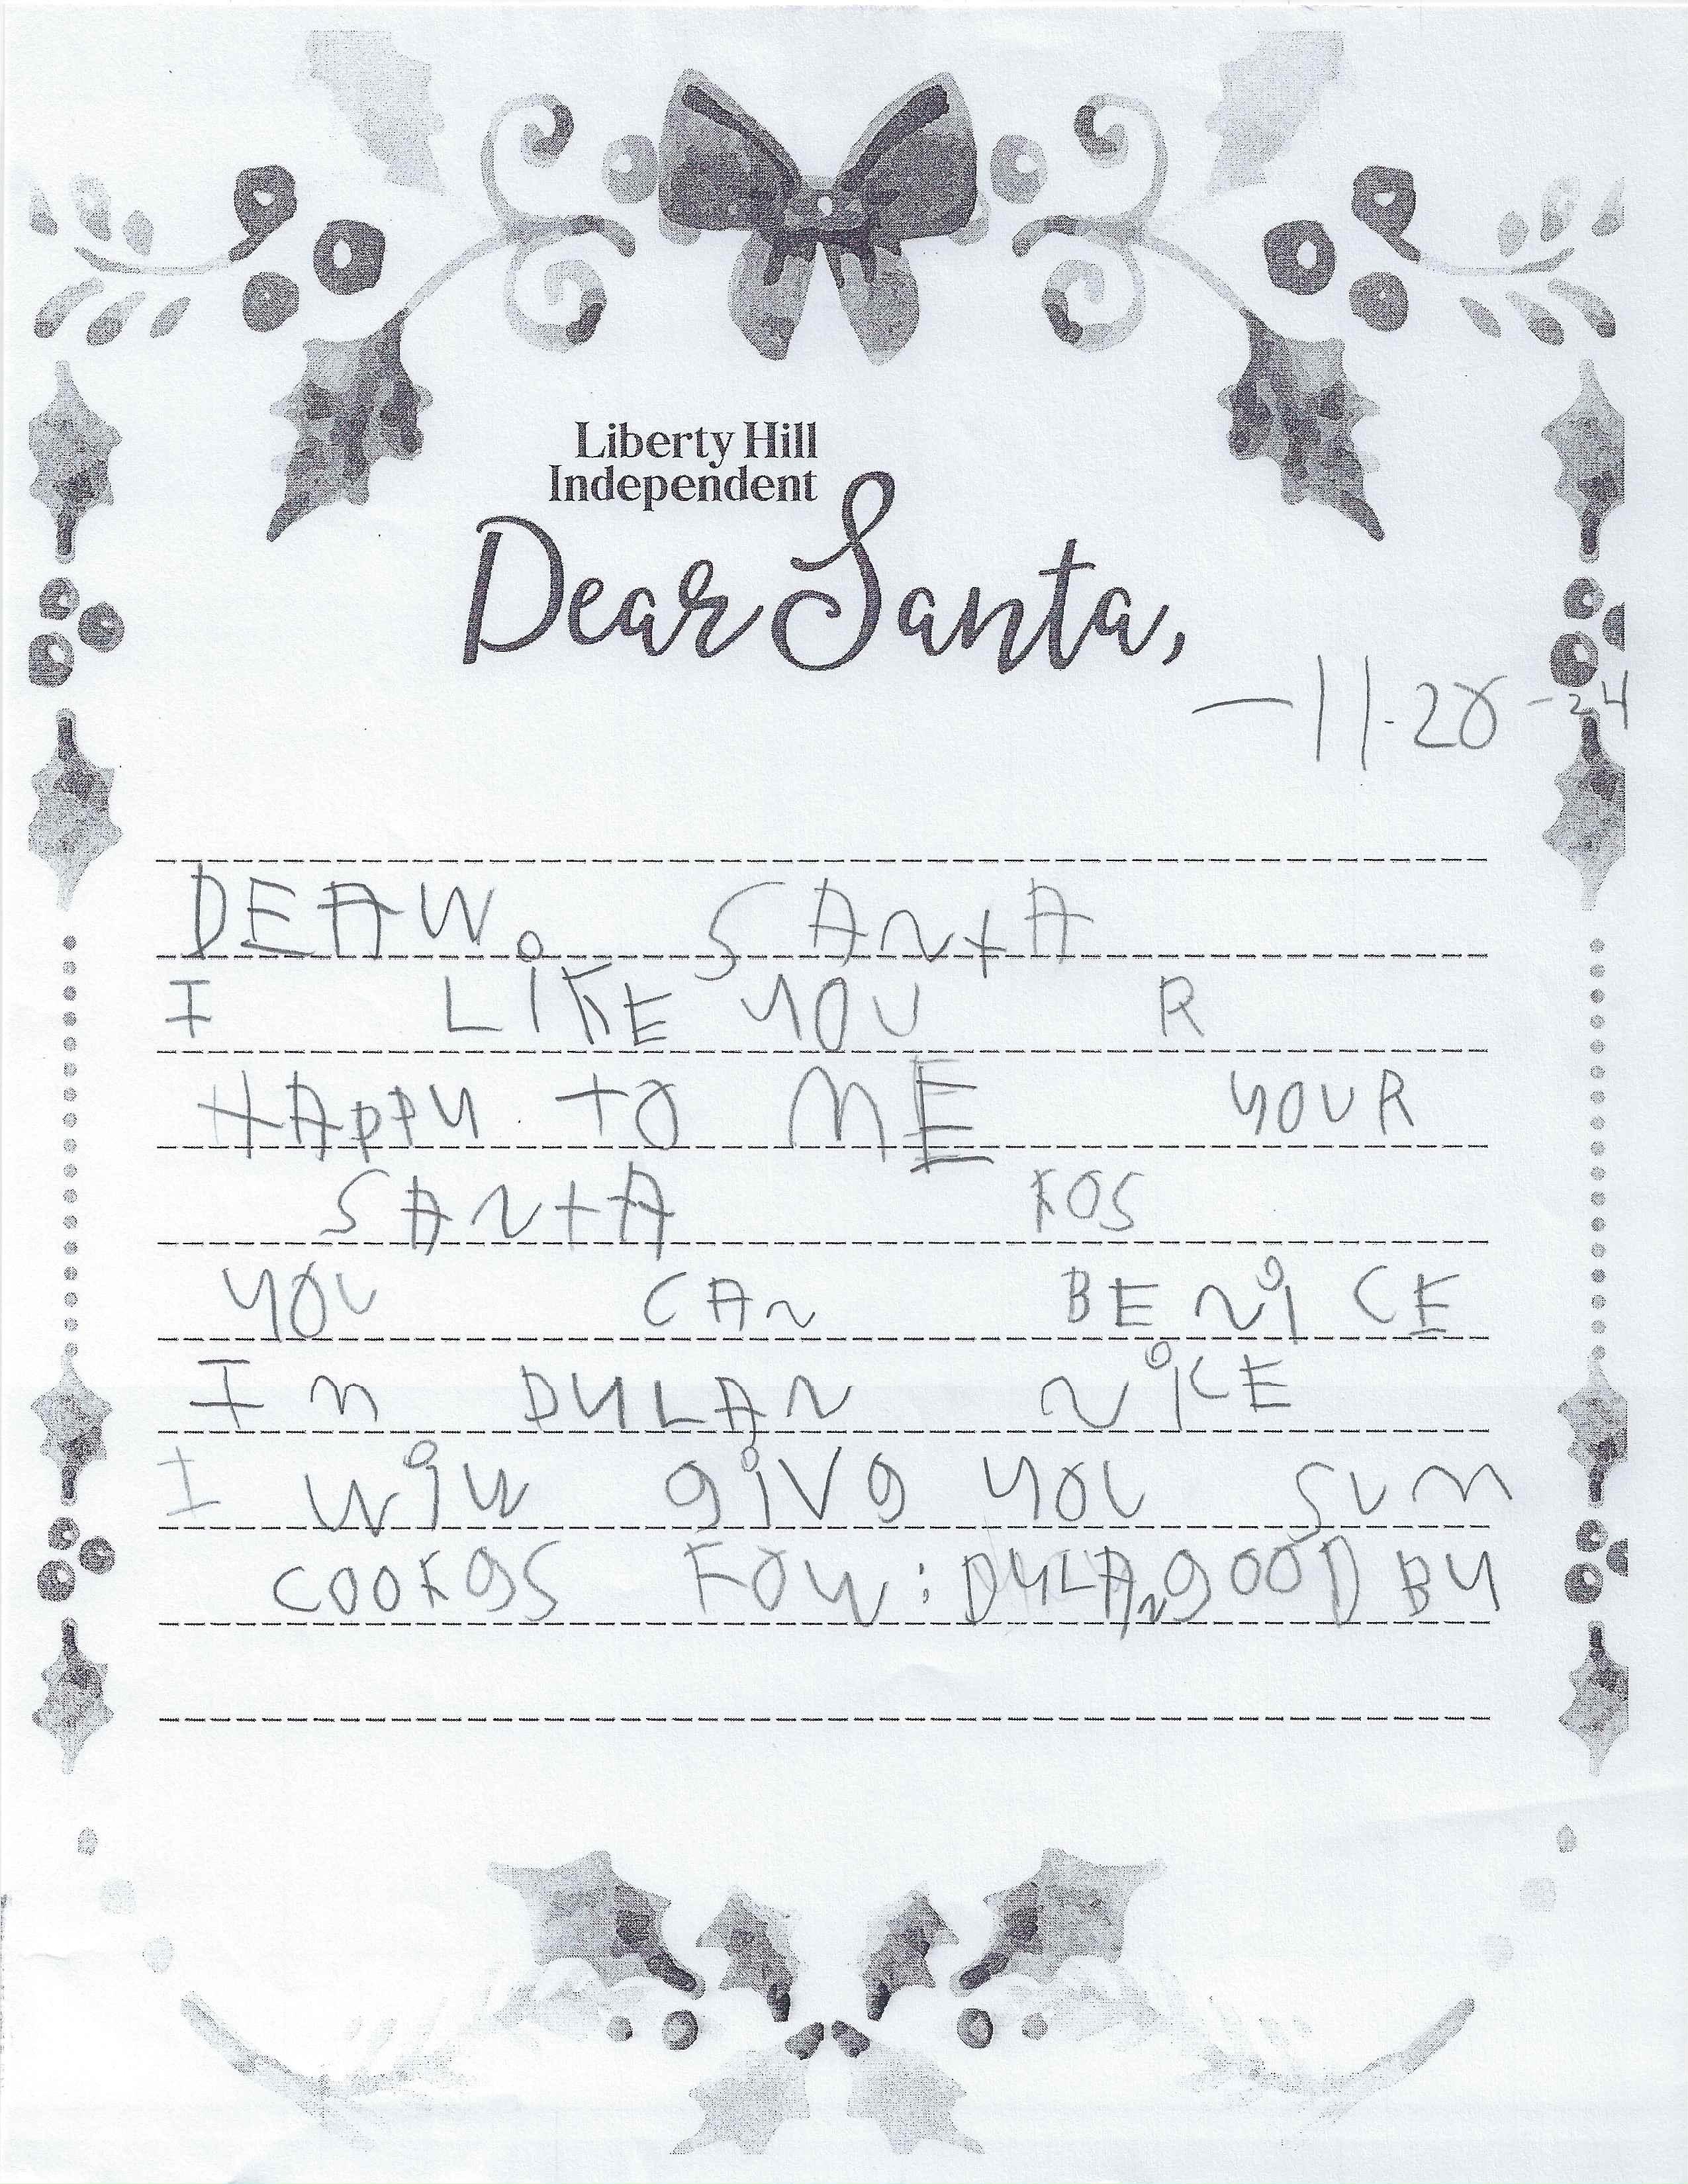 Liberty Hill
Independent
Dear Santa,
-11-20-24
DEAW SANtA
I LiKE YOU R
HAPPY to ME YOUR
SANtA KOS
YOU CAN BE NiCE
Im DYLAN NiCE
I Wiw giVg YOU SUM
COOKgS FOW : DYLAN gOOD BY